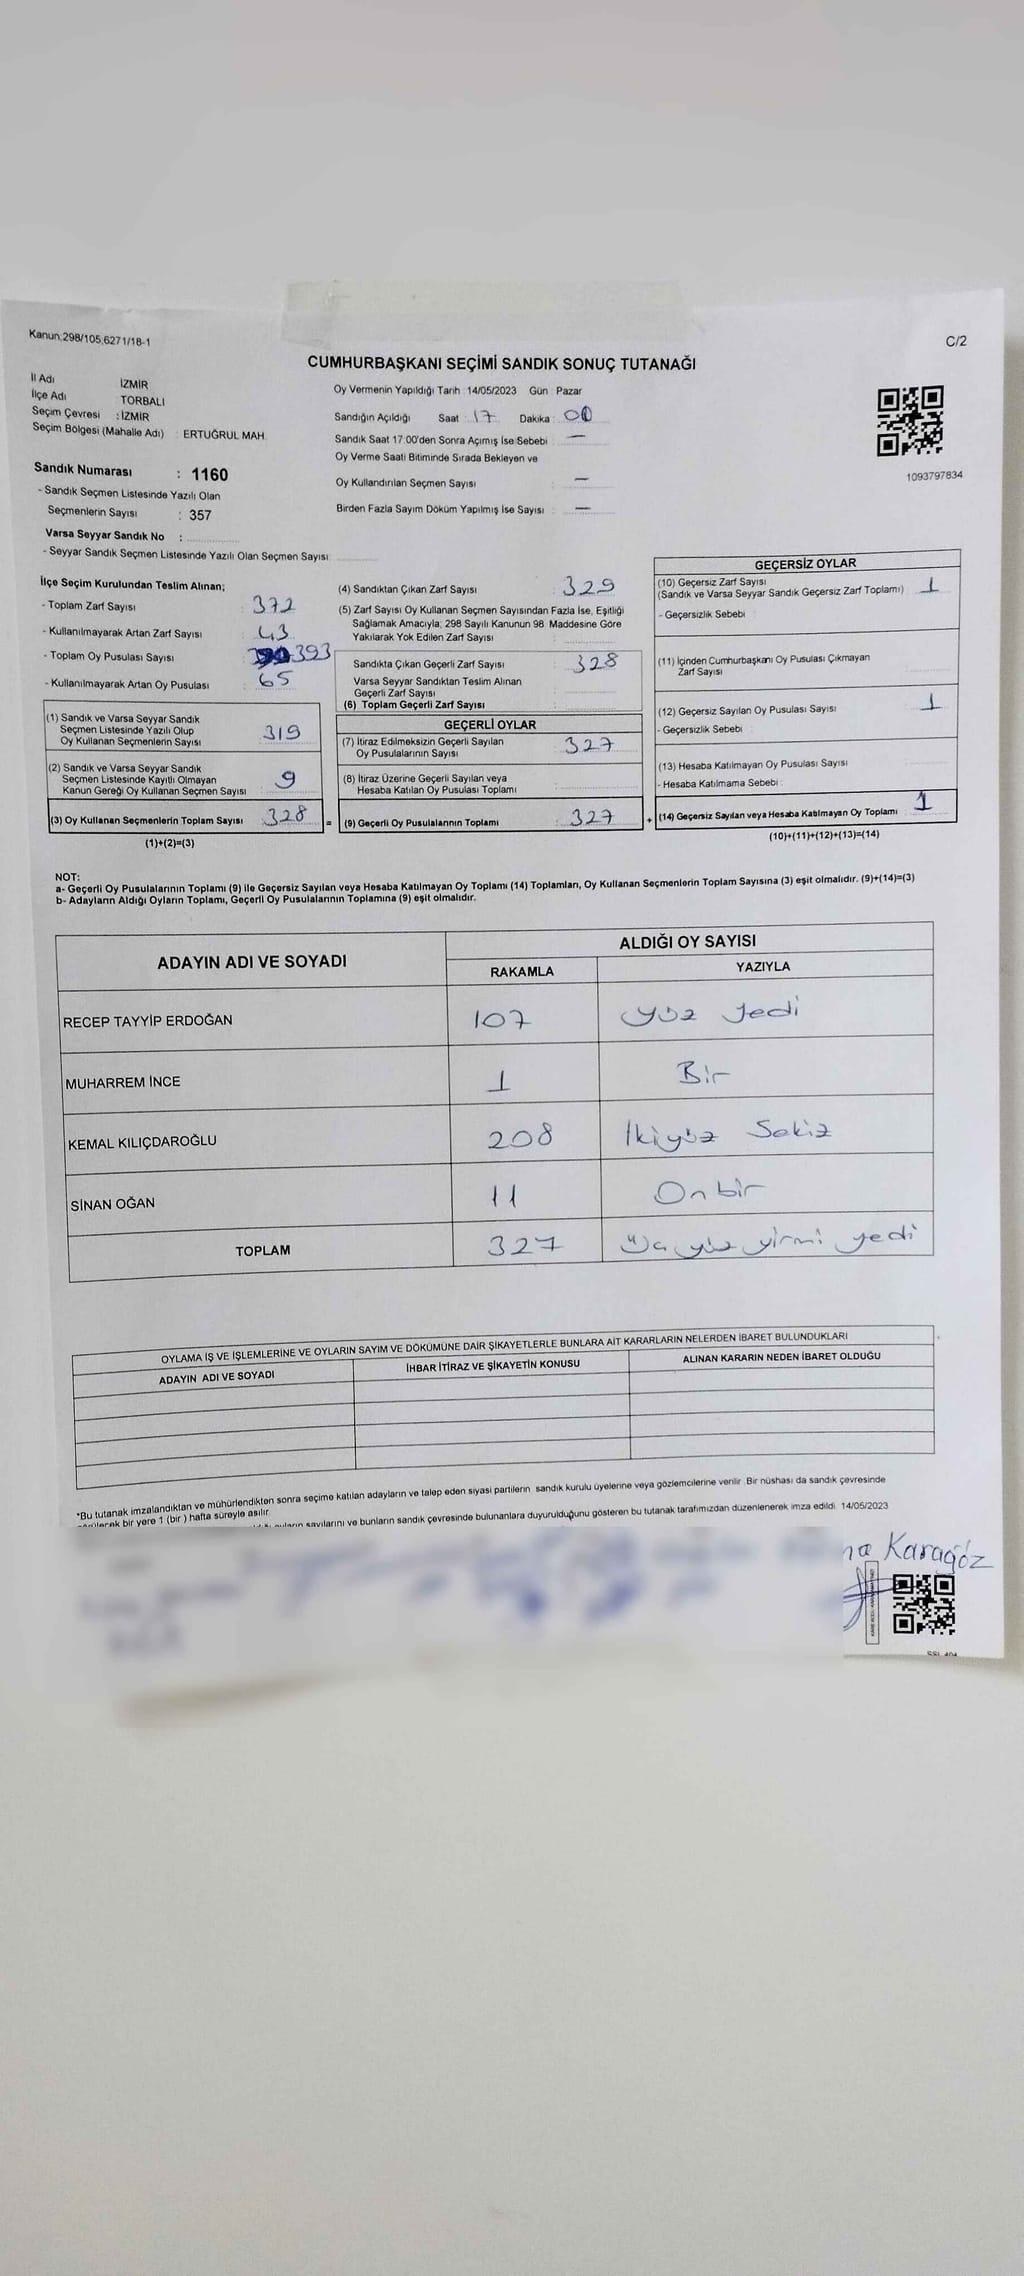 Kanun:298/105,6271/18-1
C/2
CUMHURBAŞKANI SEÇİMİ SANDIK SONUÇ TUTANAĞI
İl Adı İZMİR
İlçe Adı TORBALI
Seçim Çevresi : İZMİR
Seçim Bölgesi (Mahalle Adı) : ERTUĞRUL MAH.
Sandık Numarası : 1160
- Sandık Seçmen Listesinde Yazılı Olan
Seçmenlerin Sayısı : 357
Varsa Seyyar Sandık No :
- Seyyar Sandık Seçmen Listesinde Yazılı Olan Seçmen Sayısı
Oy Vermenin Yapıldığı Tarih : 14/05/2023 Gün : Pazar
Sandığın Açıldığı Saat : 17 Dakika : 00
Sandık Saat 17:00'den Sonra Açımış İse Sebebi : —
Oy Verme Saati Bitiminde Sırada Bekleyen ve
Oy Kullandırılan Seçmen Sayısı : —
Birden Fazla Sayım Döküm Yapılmış İse Sayısı : —
1093797834
İlçe Seçim Kurulundan Teslim Alınan;
- Toplam Zarf Sayısı : 372
- Kullanılmayarak Artan Zarf Sayısı : 43
- Toplam Oy Pusulası Sayısı : 393
- Kullanılmayarak Artan Oy Pusulası : 65
(1) Sandık ve Varsa Seyyar Sandık
Seçmen Listesinde Yazılı Olup
Oy Kullanan Seçmenlerin Sayısı : 319
(2) Sandık ve Varsa Seyyar Sandık
Seçmen Listesinde Kayıtlı Olmayan
Kanun Gereği Oy Kullanan Seçmen Sayısı : 9
(3) Oy Kullanan Seçmenlerin Toplam Sayısı : 328 =
(1)+(2)=(3)
(4) Sandıktan Çıkan Zarf Sayısı : 329
(5) Zarf Sayısı Oy Kullanan Seçmen Sayısından Fazla İse, Eşitliği
Sağlamak Amacıyla; 298 Sayılı Kanunun 98. Maddesine Göre
Yakılarak Yok Edilen Zarf Sayısı :
Sandıkta Çıkan Geçerli Zarf Sayısı : 328
Varsa Seyyar Sandıktan Teslim Alınan
Geçerli Zarf Sayısı
(6) Toplam Geçerli Zarf Sayısı
GEÇERLİ OYLAR
(7) İtiraz Edilmeksizin Geçerli Sayılan
Oy Pusulalarının Sayısı : 327
(8) İtiraz Üzerine Geçerli Sayılan veya
Hesaba Katılan Oy Pusulası Toplamı :
(9) Geçerli Oy Pusulalarının Toplamı : 327 +
GEÇERSİZ OYLAR
(10) Geçersiz Zarf Sayısı
(Sandık ve Varsa Seyyar Sandık Geçersiz Zarf Toplamı) : 1
- Geçersizlik Sebebi :
(11) İçinden Cumhurbaşkanı Oy Pusulası Çıkmayan
Zarf Sayısı
(12) Geçersiz Sayılan Oy Pusulası Sayısı : 1
- Geçersizlik Sebebi :
(13) Hesaba Katılmayan Oy Pusulası Sayısı
- Hesaba Katılmama Sebebi :
(14) Geçersiz Sayılan veya Hesaba Katılmayan Oy Toplamı : 1
(10)+(11)+(12)+(13)=(14)
NOT:
a- Geçerli Oy Pusulalarının Toplamı (9) ile Geçersiz Sayılan veya Hesaba Katılmayan Oy Toplamı (14) Toplamları, Oy Kullanan Seçmenlerin Toplam Sayısına (3) eşit olmalıdır. (9)+(14)=(3)
b- Adayların Aldığı Oyların Toplamı, Geçerli Oy Pusulalarının Toplamına (9) eşit olmalıdır.
ADAYIN ADI VE SOYADI ALDIĞI OY SAYISI
RAKAMLA YAZIYLA
RECEP TAYYİP ERDOĞAN 107 yüz yedi
MUHARREM İNCE 1 Bir
KEMAL KILIÇDAROĞLU 208 İkiyüz Sekiz
SİNAN OĞAN 11 Onbir
TOPLAM 327 üç yüz yirmi yedi
OYLAMA İŞ VE İŞLEMLERİNE VE OYLARIN SAYIM VE DÖKÜMÜNE DAİR ŞİKAYETLERLE BUNLARA AİT KARARLARIN NELERDEN İBARET BULUNDUKLARI
ADAYIN ADI VE SOYADI İHBAR İTİRAZ VE ŞİKAYETİN KONUSU ALINAN KARARIN NEDEN İBARET OLDUĞU
*Bu tutanak imzalandıktan ve mühürlendikten sonra seçime katılan adayların ve talep eden siyasi partilerin sandık kurulu üyelerine veya gözlemcilerine verilir. Bir nüshası da sandık çevresinde
bir yere 1 (bir) hafta süreyle asılır.
sayılarını ve bunların sandık çevresinde bulunanlara duyurulduğunu gösteren bu tutanak tarafımızdan düzenlenerek imza edildi. 14/05/2023
Karagöz